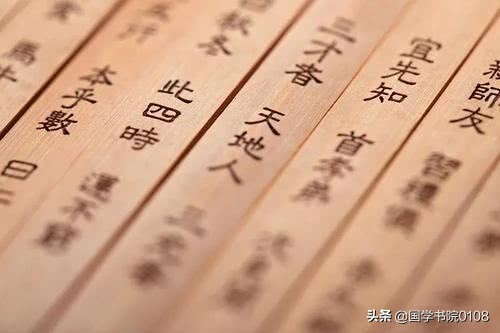 親師友 習禮儀
宜先知 首孝弟 次見聞
三才者 天地人 三光者
秋冬 此四時 運不窮
五行 本乎數 曰
馬牛
头条 @国学书院0108